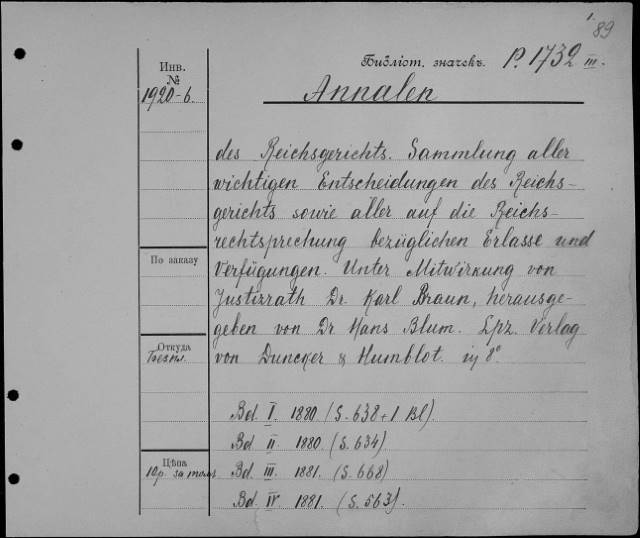 89
Инв.
№
1920-6.
Библіот. значекъ. P. 1732 III.
Annalen
des Reichsgerichts. Sammlung aller
wichtigen Entscheidungen des Reichs-
gerichts sowie aller auf die Reichs-
rechtsprechung bezüglichen Erlasse und
Verfügungen. Unter Mitwirkung von
Justizrath Dr. Karl Braun, herausge-
geben von Dr Hans Blum. Lpz. Verlag
von Duncker & Humblot. in 8°
По заказу
Откуда
Bd. I. 1880 (S. 638 + 1 Bl).
Bd. II. 1880. (S. 634)
Цѣна
10р. за томъ
Bd. III. 1881. (S. 668)
Bd. IV. 1881. (S. 563).